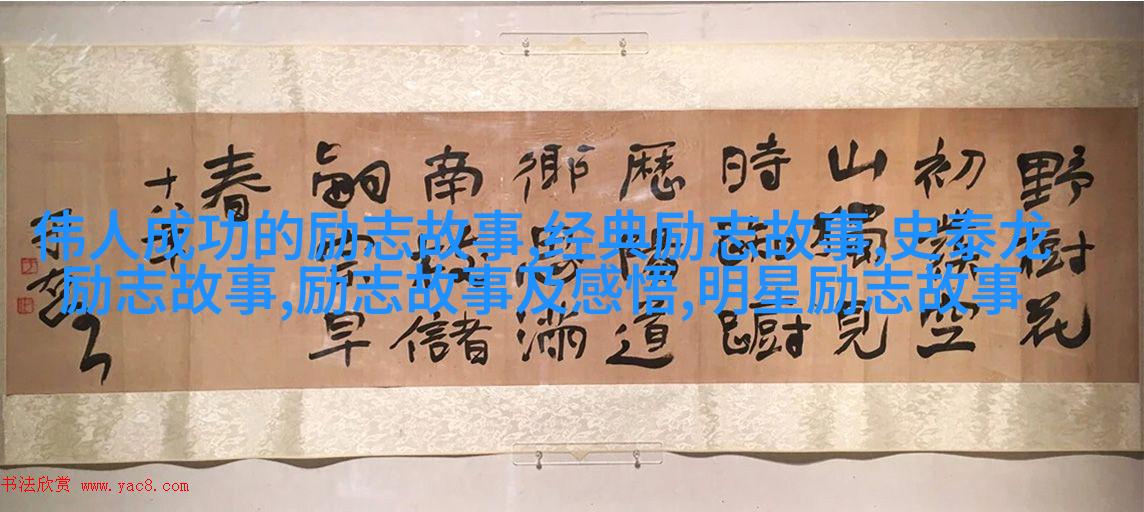 野樹花
初發空
山獨見
時踟躕
歷陽道
鄉思滿
南枝儲
嗣宗早
春
伟人成功的励志故事,经典励志故事,史泰龙
励志故事,励志故事及感悟,明星励志故事
书法欣赏 www.yac8.com